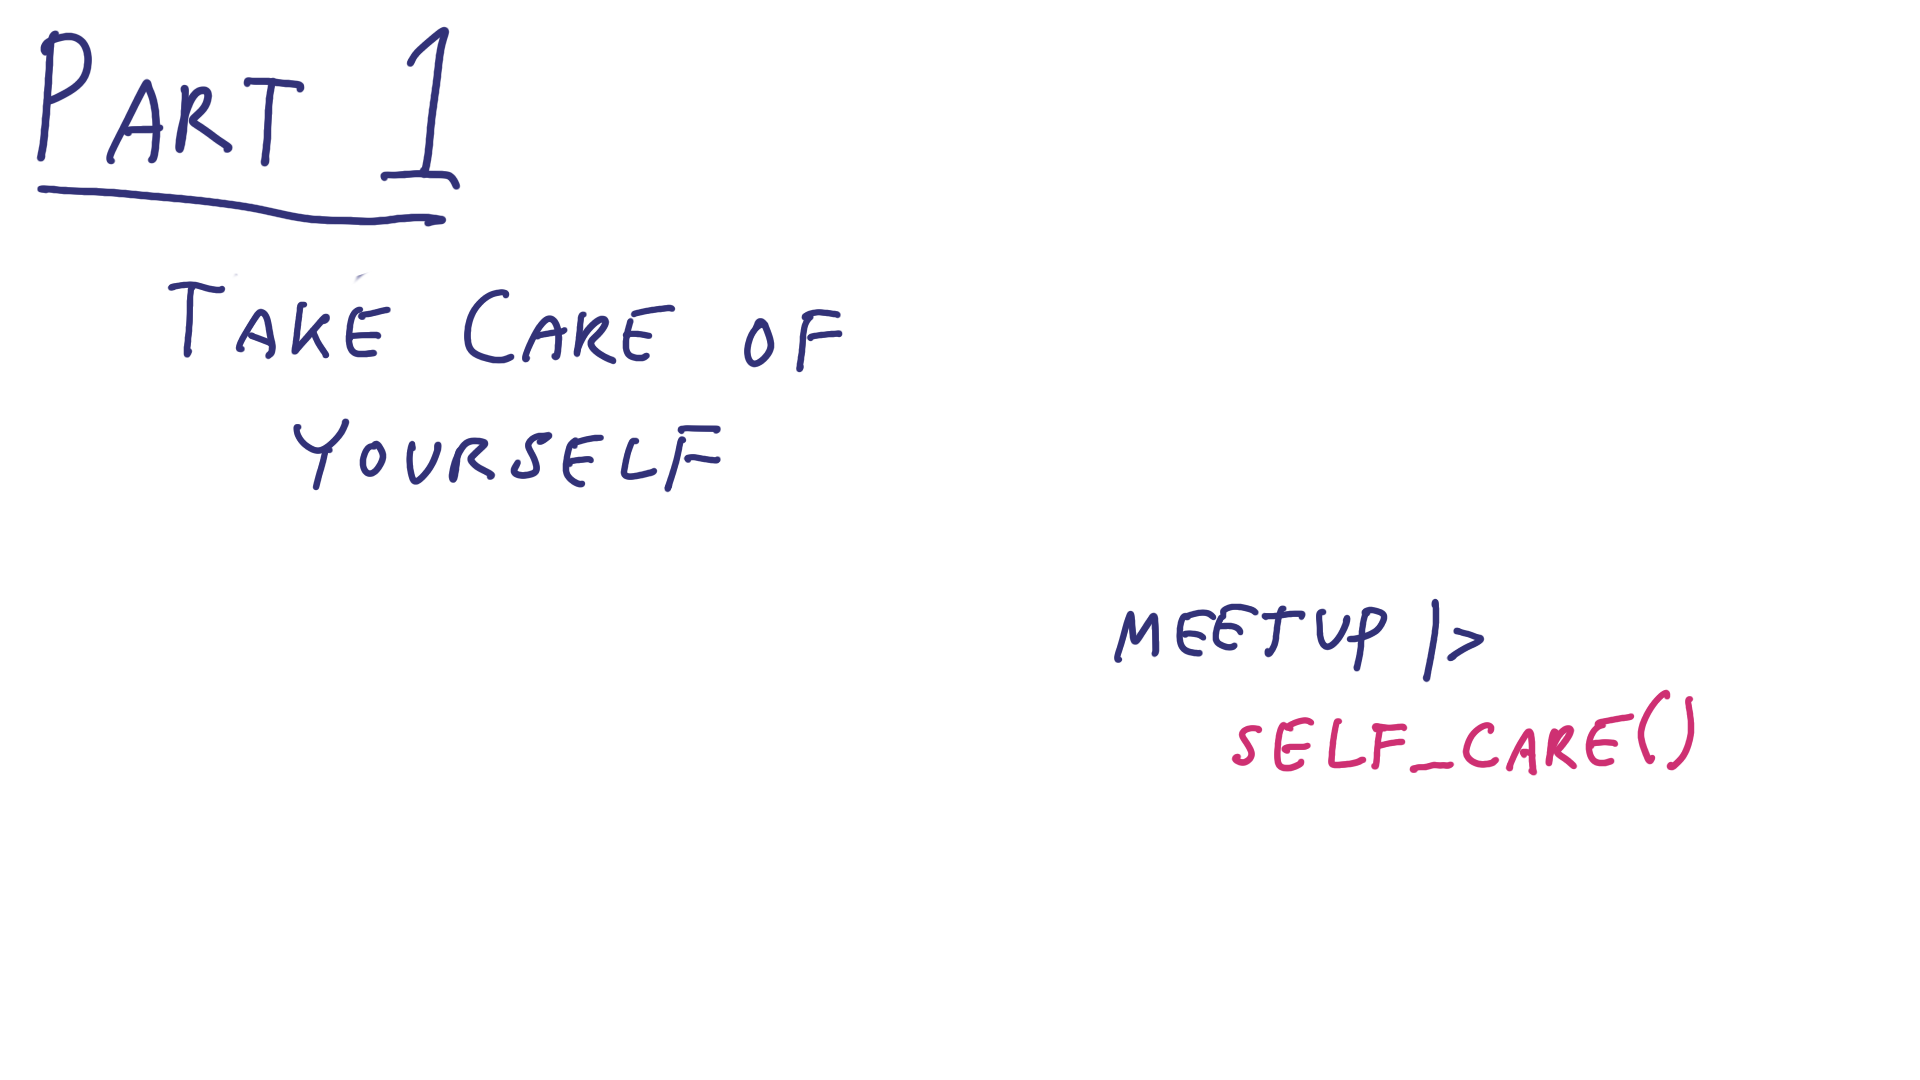 PART 1
TAKE CARE OF
YOURSELF
MEETUP |>
SELF_CARE()